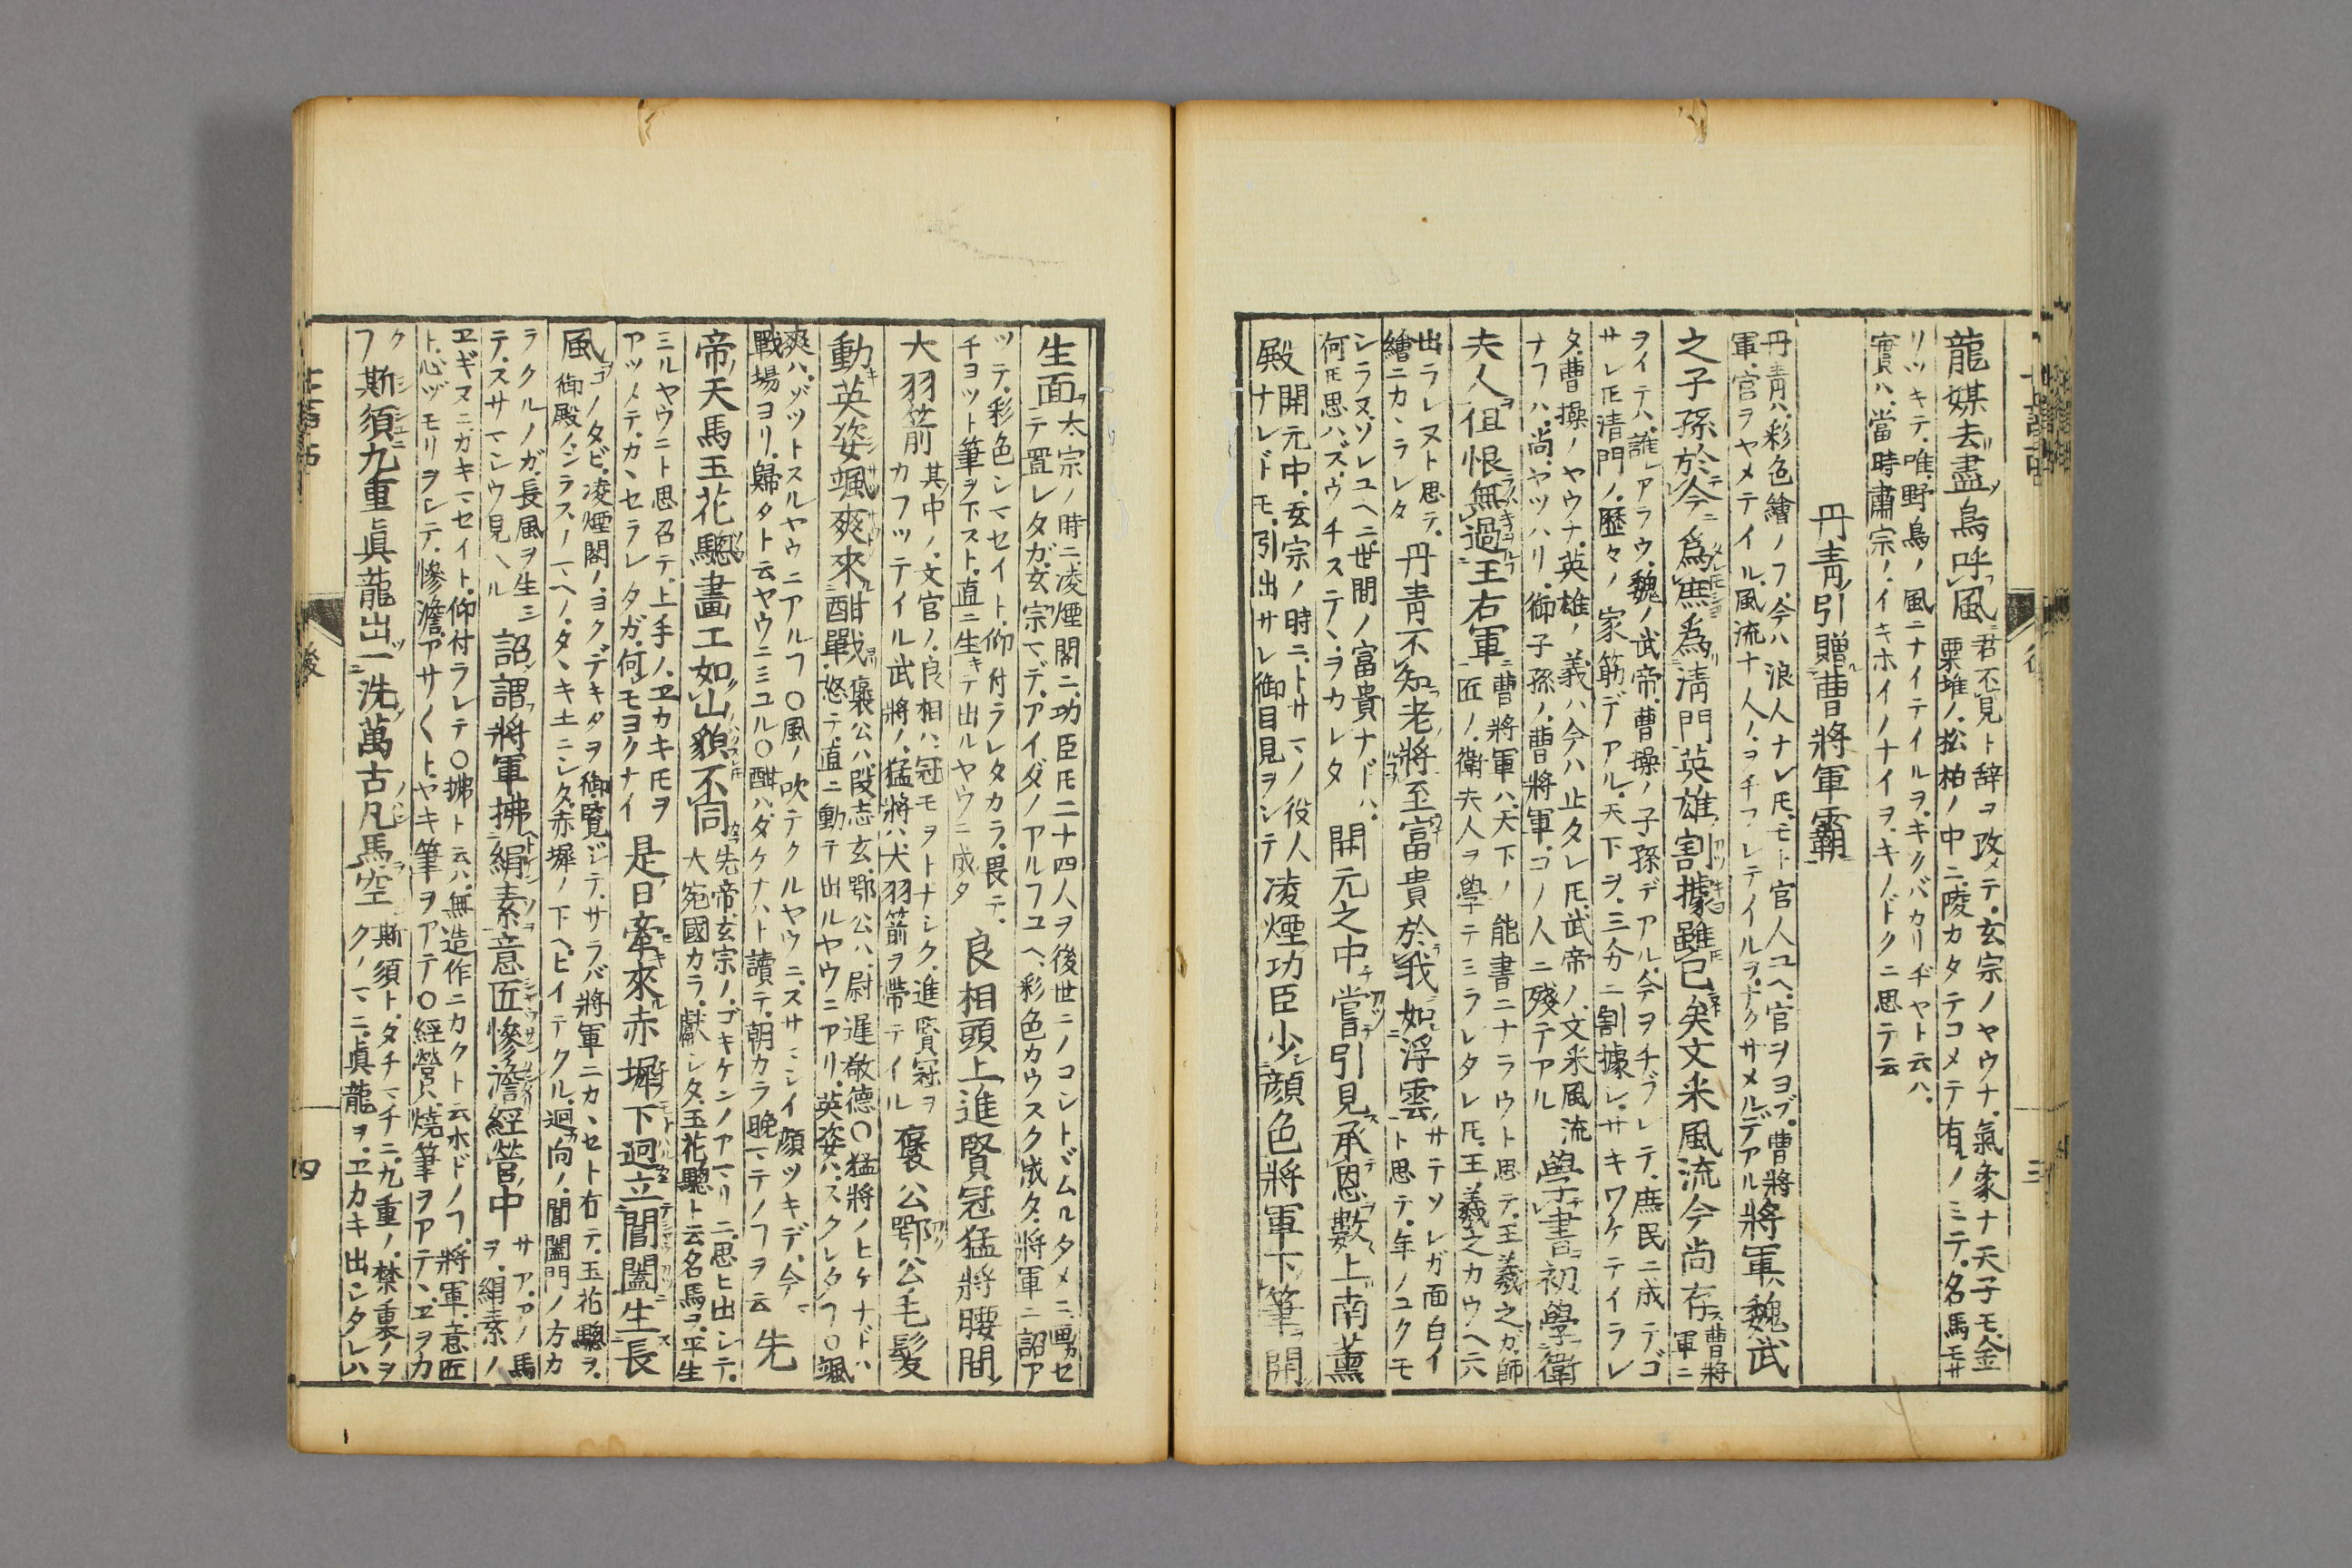 龍媒去盡鳥呼風
君不見ト辞ヲ改メテ玄宗ノヤウナ氣象ナ天子モ金
粟堆ノ松柏ノ中ニ陵カタテコメテ有ノミテ名馬モサ
リツキテ唯野鳥ノ風ニナイテイルヲキクバカリヂヤト云ハ
實ハ當時肅宗ノイキホイノナイヲキノドクニ思テ云
丹青引贈曹將軍霸
丹青ハ彩色繪ノフ今ハ浪人ナレ𪜈モト官人ユヘ官ヲヨブ曹將
軍官ヲヤメテイル風流ナ人ノヲチフレテイルヲナクサメルデアル
將軍魏武
之子孫於今爲庶爲淸門英雄割據雖已矣文采風流今尚存
曹將
軍ニ
ヲイテハ誰レアラウ魏ノ武帝曹操ノ子孫デアル今ヲチブレテ庶民ニ成テゴ
サレ𪜈淸門ノ歷々ノ家筋デアル天下ヲ三分ニ割據レサキワケテイラレ
タ曹操ノヤウナ英雄ノ義ハ今ハ止タレ𪜈武帝ノ文采風流
ナフハ尚ヤツハリ御子孫ノ曹將軍コノ人ニ殘テアル
學書初學衛
夫人但恨無過王右軍
曹將軍ハ天下ノ能書ニナラウト思テ王羲之ガ師
匠ノ衛夫人ヲ學テミラレタレ𪜈王羲之カウヘ六
出ラレヌト思テ
繪ニカヽラレタ
丹青不知老將至富貴於我如浮雲
サテソレガ面白イ
ト思テ年ノユクモ
シラヌソレユヘニ世間ノ富貴ナドハ
何𪜈思ハズウチステヽヲカレタ
開元之中嘗引見承恩數上南薫
殿
開元中玄宗ノ時ニトサマノ役人
ナレドモ引出サレ御目見ヲシテ
凌煙功臣少顔色將軍下筆開
生面
太宗ノ時ニ凌煙閣ニ功臣𪜈二十四人ヲ後世ニノコントバムルタメニ画カセ
テ置レタガ玄宗マデアイダノアルフユヘ彩色カウスク成タ將軍ニ詔ア
ツテ彩色シマセイト仰付ラレタカラ畏テ
チヨツト筆ヲ下スト直ニ生キテ出ルヤウニ成タ
良相頭上進賢冠猛將腰間
大羽箭
其中ノ文官ノ良相ハ冠モヲトナシク進賢冠ヲ
カフツテイル武將ノ猛將ハ大羽箭ヲ帶テイル
褒公鄂公毛髮
動英姿颯爽來酣戰
褒公ハ段志玄鄂公ハ尉遲敬德〇猛將ノヒケナドハ
怒テ直ニ動テ出ルヤウニアリ英姿ハスクレタフ〇颯
爽ハゾツトスルヤウニアルフ〇風ノ吹テクルヤウニスサマシイ顔ツキデ今マ
戰場ヨリ歸タト云ヤウニミユル〇酣ハダケナハト讀テ朝カラ晚マテノフヲ云
先
帝天馬玉花驄畫工如山貌不同
先帝玄宗ノゴキケンノアマリニ思ヒ出シテ
大宛國カラ獻シタ玉花驄ト云名馬ヲ平生
ミルヤウニト思召テ上手ノヱカキ𪜈ヲ
アツメテカヽセラレタガ何モヨクナイ
是日牽來赤墀下迥立閶闔生長
風
コノタビ凌煙閣ノヨクデキタヲ御覽ジテサラバ將軍ニカヽセト有テ玉花驄ヲ
御殿ノシラスノマヘノタヽキ土ニシタ赤墀ノ下ヘヒイテクル迥向ノ閶闔門ノ方カ
ラクルノガ長風ヲ生ミ
テスサマシウ見ヘル
詔謂將軍拂絹素意匠慘澹經營中
サアアノ馬
ヲ絹素ノ
ヱギヌニガキマセイト仰付ラレテ〇拂ト云ハ無造作ニカクト云ホドノフ將軍意匠
ト心ヅモリヲレテ慘澹アサ〱トヤキ筆ヲアテ〇經營ハ燒筆ヲアテヽヱヲカ
ク
フ
斯須九重眞龍出一洗萬古凡馬空
斯須トタチマチニ九重ノ禁裏ノヲ
クノマニ眞龍ヲヱカキ出シタレハ
三
四